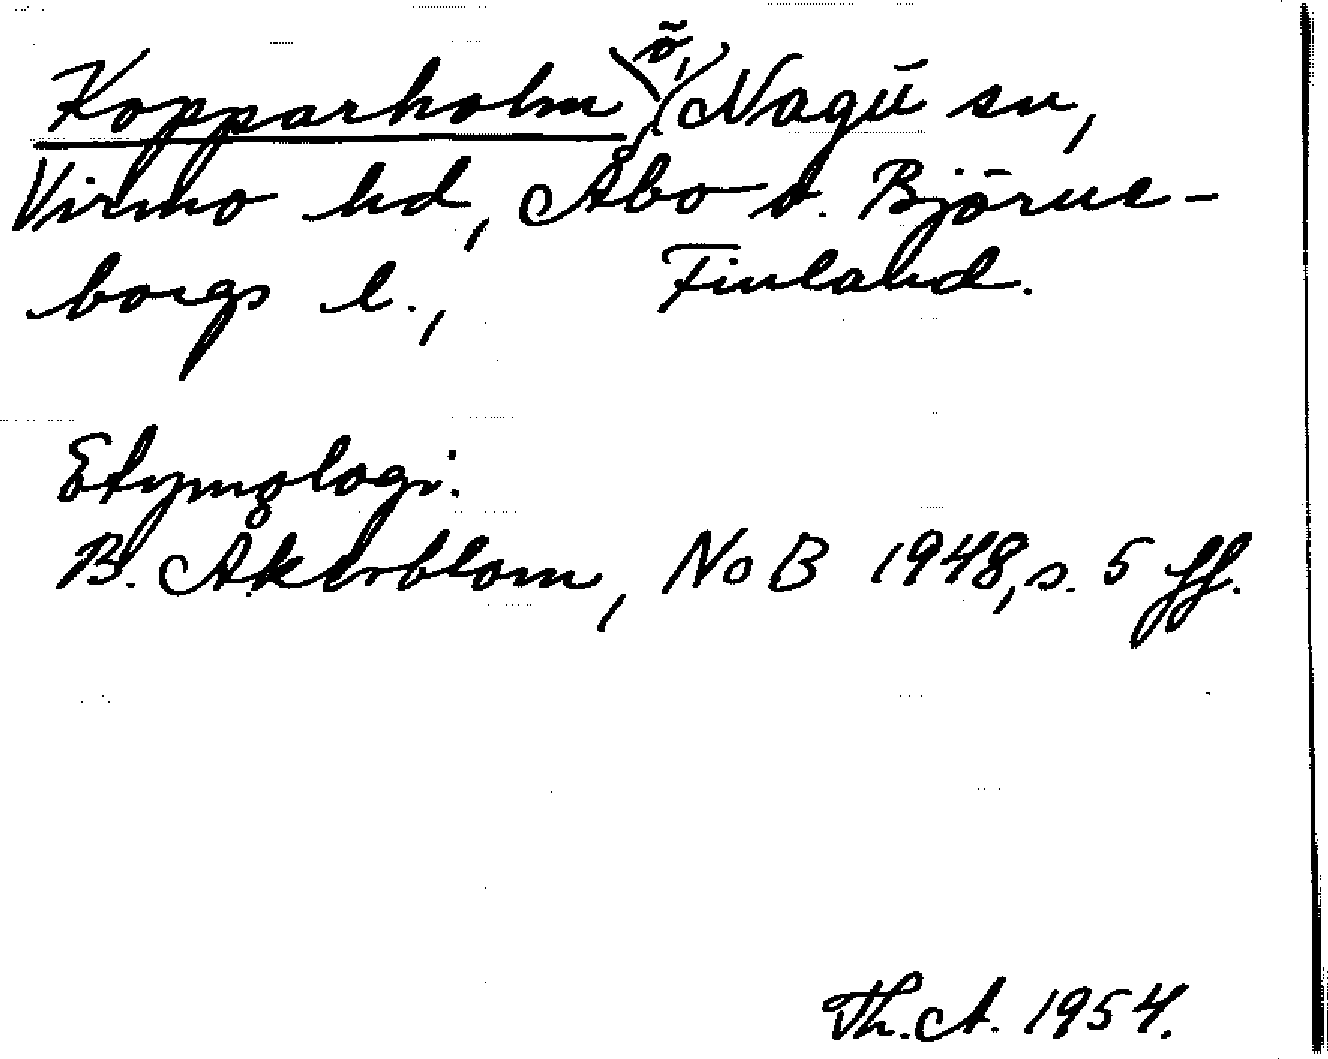 Kopparholm ö, Nagu sn,
Virmo hd, Åbo o. Björne-
borgs l., Finland.
Etymologi:
B. Åkerblom, NoB 1948, s. 5 ff.
Th. A. 1954.